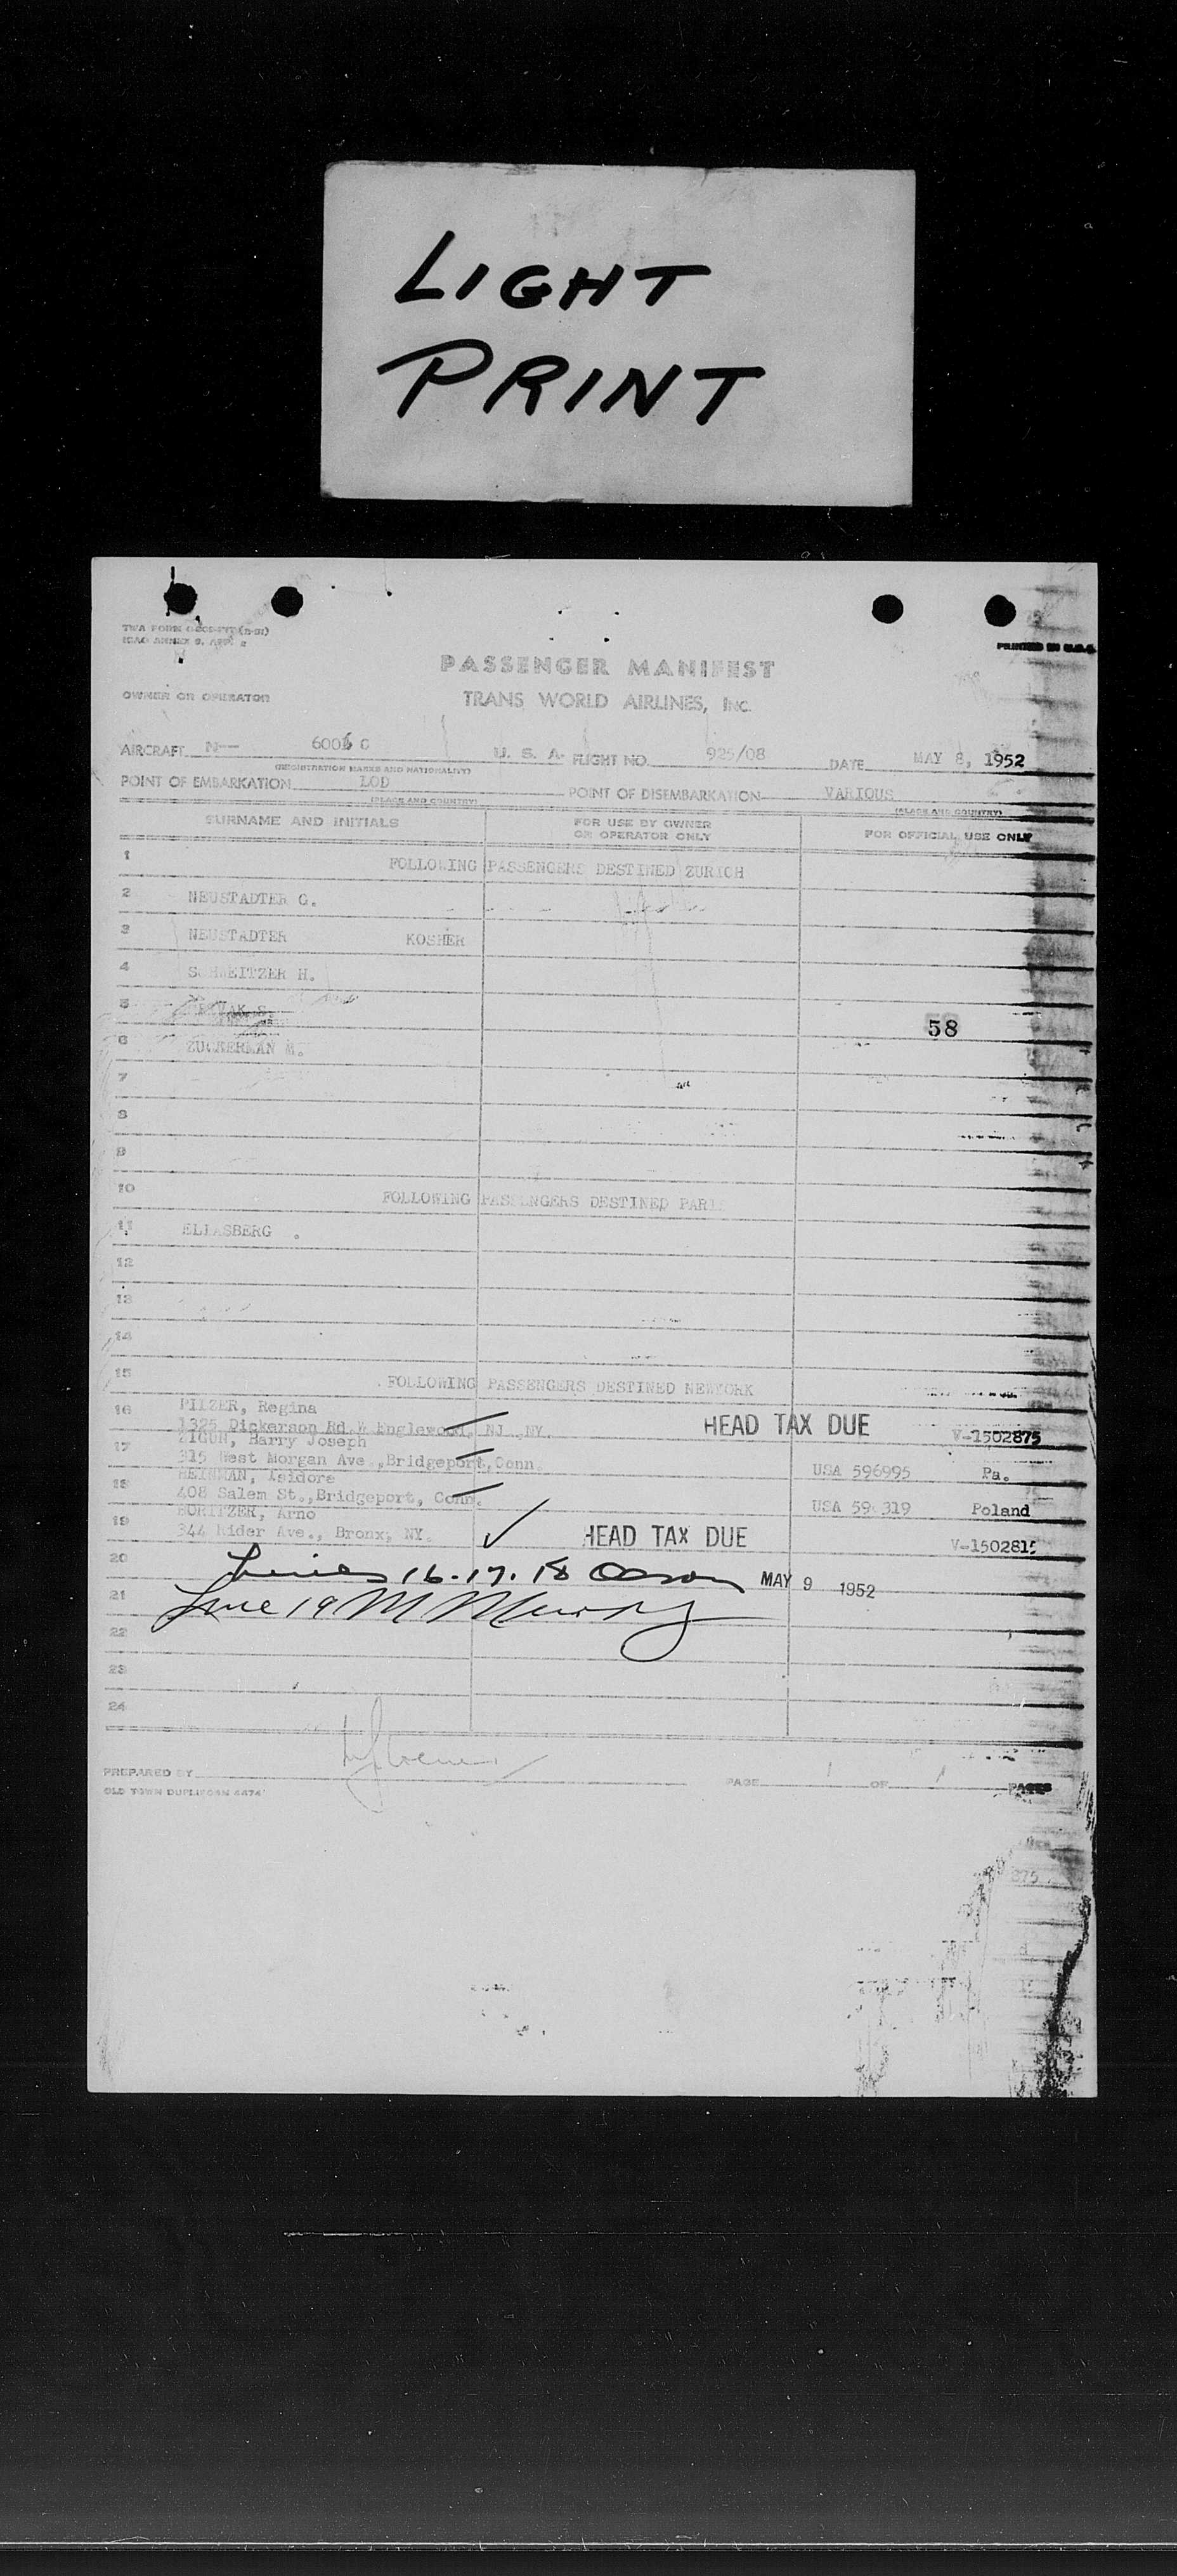 LIGHT
PRINT
PRINTED IN U.S.A.
PASSENGER MANIFEST
OWNER OR OPERATOR
TRANS WORLD AIRLINES, INC.
AIRCRAFT N-- C U. S. A. FLIGHT NO. 925/08 DATE MAY 8, 1952
(REGISTRATION MARKS AND NATIONALITY)
POINT OF EMBARKATION LOD POINT OF DISEMBARKATION VARIOUS
(PLACE AND COUNTRY) (PLACE AND COUNTRY)
SURNAME AND INITIALS FOR USE BY OWNER OR OPERATOR ONLY FOR OFFICIAL USE ONLY
1 FOLLOWING PASSENGERS DESTINED ZURICH
2 NEUSTADTER G.
3 NEUSTADTER KOSHER
4 SCHWEITZER H.
5
58
6 ZUCKERMAN M.
7
8
9
10 FOLLOWING PASSENGERS DESTINED PARIS
11 ELIASBERG .
12
13
14
15 FOLLOWING PASSENGERS DESTINED NEWYORK
16 PILZER, Regina
1325 Dickerson Rd. W Englewood, NJ ,NY. HEAD TAX DUE V-1502875
17 Harry Joseph
315 West Morgan Ave.,Bridgeport,Conn. USA 596995 Pa.
18 Isidore
408 Salem St.,Bridgeport, Conn. USA Poland
19 BORITZER, Arno
344 Rider Ave., Bronx, NY. HEAD TAX DUE V-1502815
20 Lines 16.17.18 Olson MAY 9 1952
21 Line 19 M Murphy
22
23
24
PREPARED BY PAGE 1 OF 1 PAGES
OLD TOWN DUPLIFORM 4474